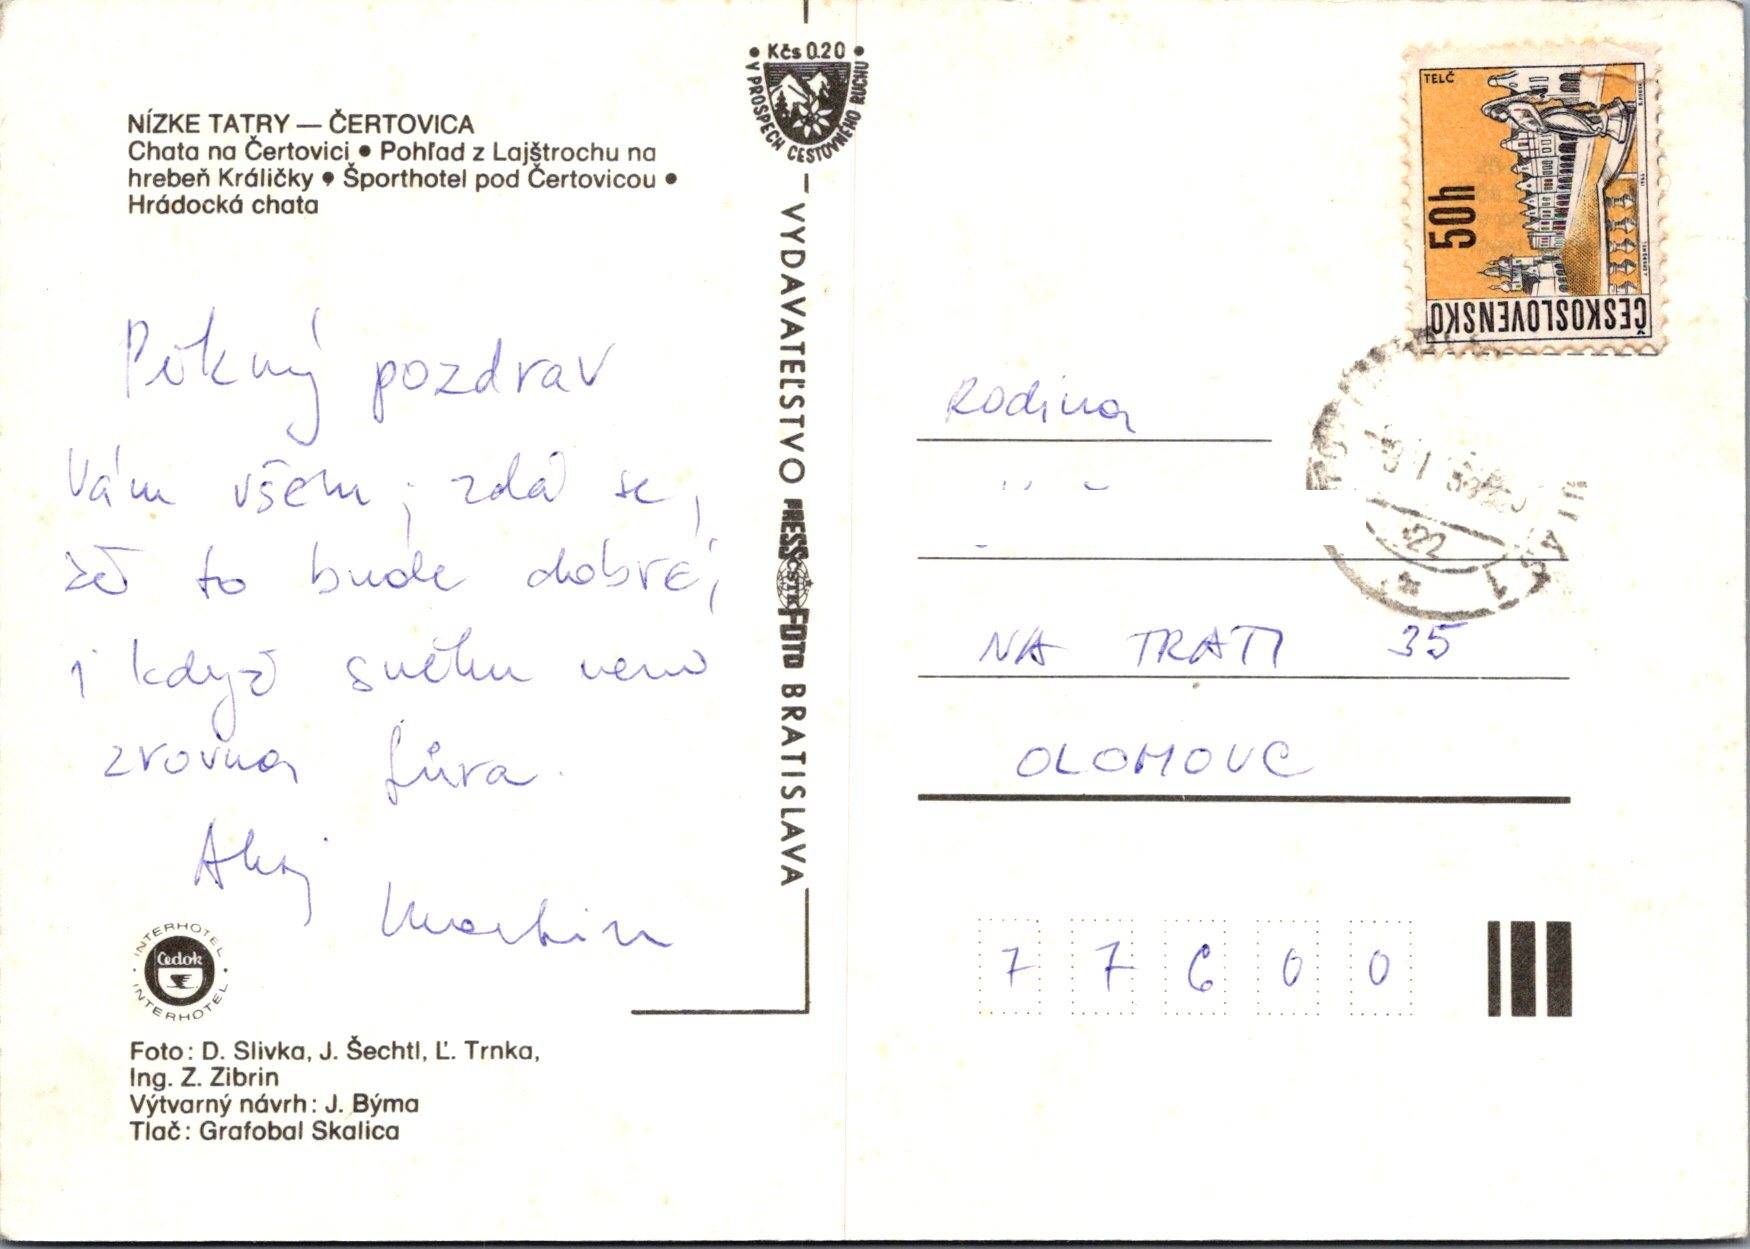 NÍZKE TATRY — ČERTOVICA
Chata na Čertovici • Pohľad z Lajštrochu na
hrebeň Králičky • Športhotel pod Čertovicou •
Hrádocká chata
Pěkný pozdrav
Vám všem; zdá se,
že to bude dobré,
i když sněhu není
zrovna fůra.
Ahoj
Martin
INTERHOTEL
Čedok
INTERHOTEL
Foto: D. Slivka, J. Šechtl, Ľ. Trnka,
Ing. Z. Zibrin
Výtvarný návrh: J. Býma
Tlač: Grafobal Skalica
• Kčs 0.20 •
V PROSPECH CESTOVNÉHO RUCHU
VYDAVATEĽSTVO PRESSFOTO BRATISLAVA
ČSTK
TELČ
50h
ČESKOSLOVENSKO
22
1
Rodina
NA TRATI 35
OLOMOUC
77600